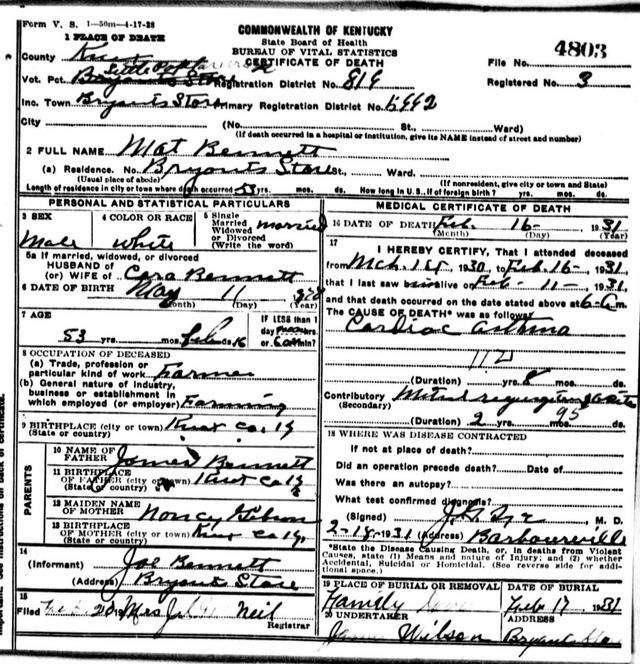 Form V. S. 1—50m—4-17-28
1 PLACE OF DEATH
COMMONWEALTH OF KENTUCKY
State Board of Health
BUREAU OF VITAL STATISTICS
CERTIFICATE OF DEATH
File No. 4803
County Knox
Vot. Pct. Bryants Store Registration District No. 819 Registered No. 3
Inc. Town Bryants Store Primary Registration District No.
City (No. St., Ward)
(If death occurred in a hospital or institution, give its NAME instead of street and number)
2 FULL NAME Mat Bennett
(a) Residence. No. Bryants Store St., Ward.
(Usual place of abode) (If nonresident, give city or town and State)
Length of residence in city or town where death occurred 53 yrs. mos. ds. How long in U. S., if of foreign birth? yrs. mos. ds.
PERSONAL AND STATISTICAL PARTICULARS
3 SEX Male
4 COLOR OR RACE white
5 Single Married Widowed or Divorced (Write the word) married
5a If married, widowed, or divorced
HUSBAND of
(or) WIFE of Cora Bennett
6 DATE OF BIRTH May 11
(Month) (Day) (Year)
7 AGE 53 yrs. mos. ds. IF LESS than 1 day hrs. or min?
8 OCCUPATION OF DECEASED
(a) Trade, profession or
particular kind of work Farmer
(b) General nature of industry,
business or establishment in
which employed (or employer) Farming
9 BIRTHPLACE (city or town) Knox Co. Ky
(State or country)
PARENTS
10 NAME OF FATHER James Bennett
11 BIRTHPLACE OF FATHER (city or town) Knox Co Ky
(State or country)
12 MAIDEN NAME OF MOTHER Nancy Gibson
13 BIRTHPLACE OF MOTHER (city or town) Knox Co Ky.
(State or country)
14
(Informant) Joe Bennett
(Address) Bryants Store
15
Filed 20 19 Mrs Neil
Registrar
MEDICAL CERTIFICATE OF DEATH
16 DATE OF DEATH Feb. 16- 1931
(Month) (Day) (Year)
17
I HEREBY CERTIFY, That I attended deceased
from Mch. 1st, 1930 to Feb. 16- 1931
that I last saw him alive on Feb 11- 1931,
and that death occurred on the date stated above at 6-a m.
The CAUSE OF DEATH* was as follows:
Cardiac asthma
112
(Duration) yrs. 8 mos. ds.
Contributory Mitral regurgitation
(Secondary) 95
(Duration) 2 yrs. mos. ds.
18 WHERE WAS DISEASE CONTRACTED
If not at place of death?
Did an operation precede death? Date of
Was there an autopsy?
What test confirmed diagnosis?
(Signed) M. D.
2-18-1931 (Address) Barbourville
*State the Disease Causing Death, or, in deaths from Violent
Causes, state (1) Means and nature of Injury; and (2) whether
Accidental, Suicidal or Homicidal. (See reverse side for addi-
tional space.)
19 PLACE OF BURIAL OR REMOVAL Family
DATE OF BURIAL Feb 17 1931
20 UNDERTAKER James Wilson
ADDRESS Bryants Store